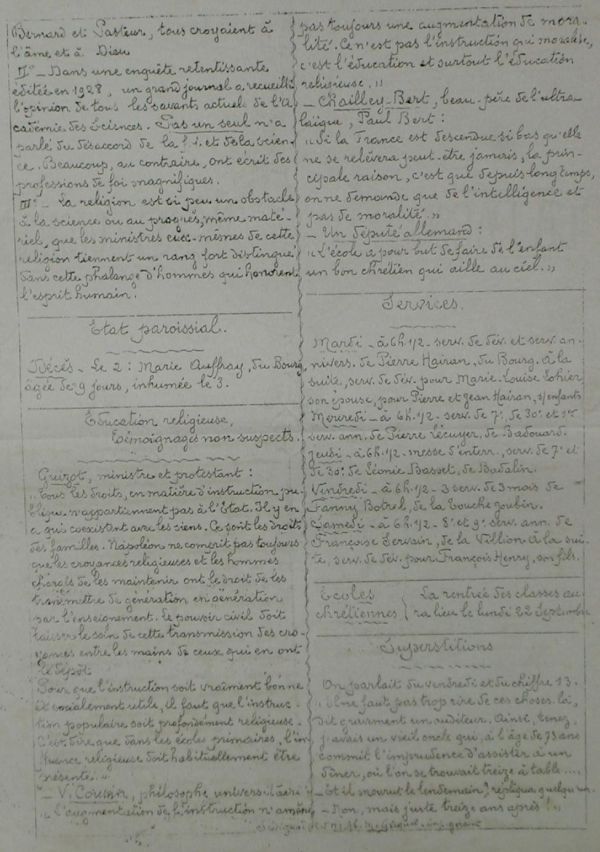 Bernard et Pasteur, tous croyaient à
l'âme et à Dieu
II° - Dans une enquête retentissante
éditée en 1928, un grand journal a recueilli
l'opinion de tous les savants actuels de l'A
cadémie des Sciences. Pas un seul n'a
parlé du désaccord de la foi et de la scien-
ce. Beaucoup, au contraire, ont écrit des
professions de foi magnifiques.
III° - La religion est si peu un obstacle
à la science ou au progrès, même maté-
riel, que les ministres eux-mêmes de cette
religion tiennent un rang fort distingué
dans cette phalange d'hommes qui honorent
l'esprit humain.
Etat paroissial.
Décès - Le 2 : Marie Auffray, du Bourg
âgée de 9 jours, inhumée le 3.
Education religieuse,
Témoignages non suspects.
Guizot, ministre et protestant :
Tous les droits, en matière d'instruction pu-
blique n'appartiennent pas à l'Etat. Il y en
a qui coexistent avec les siens. Ce sont les droits
des familles. Napoléon ne comprit pas toujours
que les croyances religieuses et les hommes
chargés de les maintenir ont le droit de les
transmettre de génération en génération
par l'enseignement. Le pouvoir civil doit
laisser le soin de cette transmission des cro-
yances entre les mains de ceux qui en ont
le dépôt
Pour que l'instruction soit vraiment bonne
et socialement utile, il faut que l'instruc-
tion populaire soit profondément religieuse.
C'est dire que dans les écoles primaires, l'in
fluence religieuse doit habituellement être
présente."
- V. Cousin, philosophe universitaire :
"L'augmentation de l'instruction n'amène
pas toujours une augmentation de mora-
lité. Ce n'est pas l'instruction qui moralise,
c'est l'éducation et surtout l'éducation
religieuse."
- Chailley-Bert, beau-père de l'ultra
laïque, Paul Bert :
"Si la France est descendue si bas qu'elle
ne se relèvera peut-être jamais, la prin-
cipale raison, c'est que depuis longtemps,
on ne demande que de l'intelligence et
pas de moralité."
- Un député allemand :
"L'école a pour but de faire de l'enfant
un bon chrétien qui aille au ciel."
Services.
Mardi - à 6h.1/2 - serv. de dév. et serv. an-
nivers. de Pierre Hairan, du Bourg. à la
suite, serv. de dév. pour Marie-Louise Lohier
son épouse, pour Pierre et Jean Hairan, s/ enfants
Mercredi - à 6h.1/2 - serv. de 7°, de 30° et 1er
serv. ann. de Pierre Lécuyer, de Badouard.
Jeudi - à 6h.1/2 - messe d'enterr., serv. de 7° et
de 30° de Léonie Basset, de Badalin.
Vendredi - à 6h.1/2 - 3 serv. de 3 mois de
Fanny Botrel, de la Touche Joubin.
Samedi - à 6h.1/2 - 8° et 9° serv. ann. de
Françoise Servain, de la Villion à la sui-
te, serv. de dév. pour François Henry, son fils.
Ecoles
chrétiennes
La rentrée des classes au
ra lieu le lundi 22 Septembre
Superstitions
On parlait du vendredi et du chiffre 13.
- Il ne faut pas trop rire de ces choses-là,
dit gravement un auditeur. Ainsi, tenez,
j'avais un vieil oncle qui, à l'âge de 73 ans
commit l'imprudence d'assister à un
dîner, où l'on se trouvait treize à table....
- Et il mourut le lendemain ? répliqua quelqu'un.
- Non, mais juste treize ans après !"